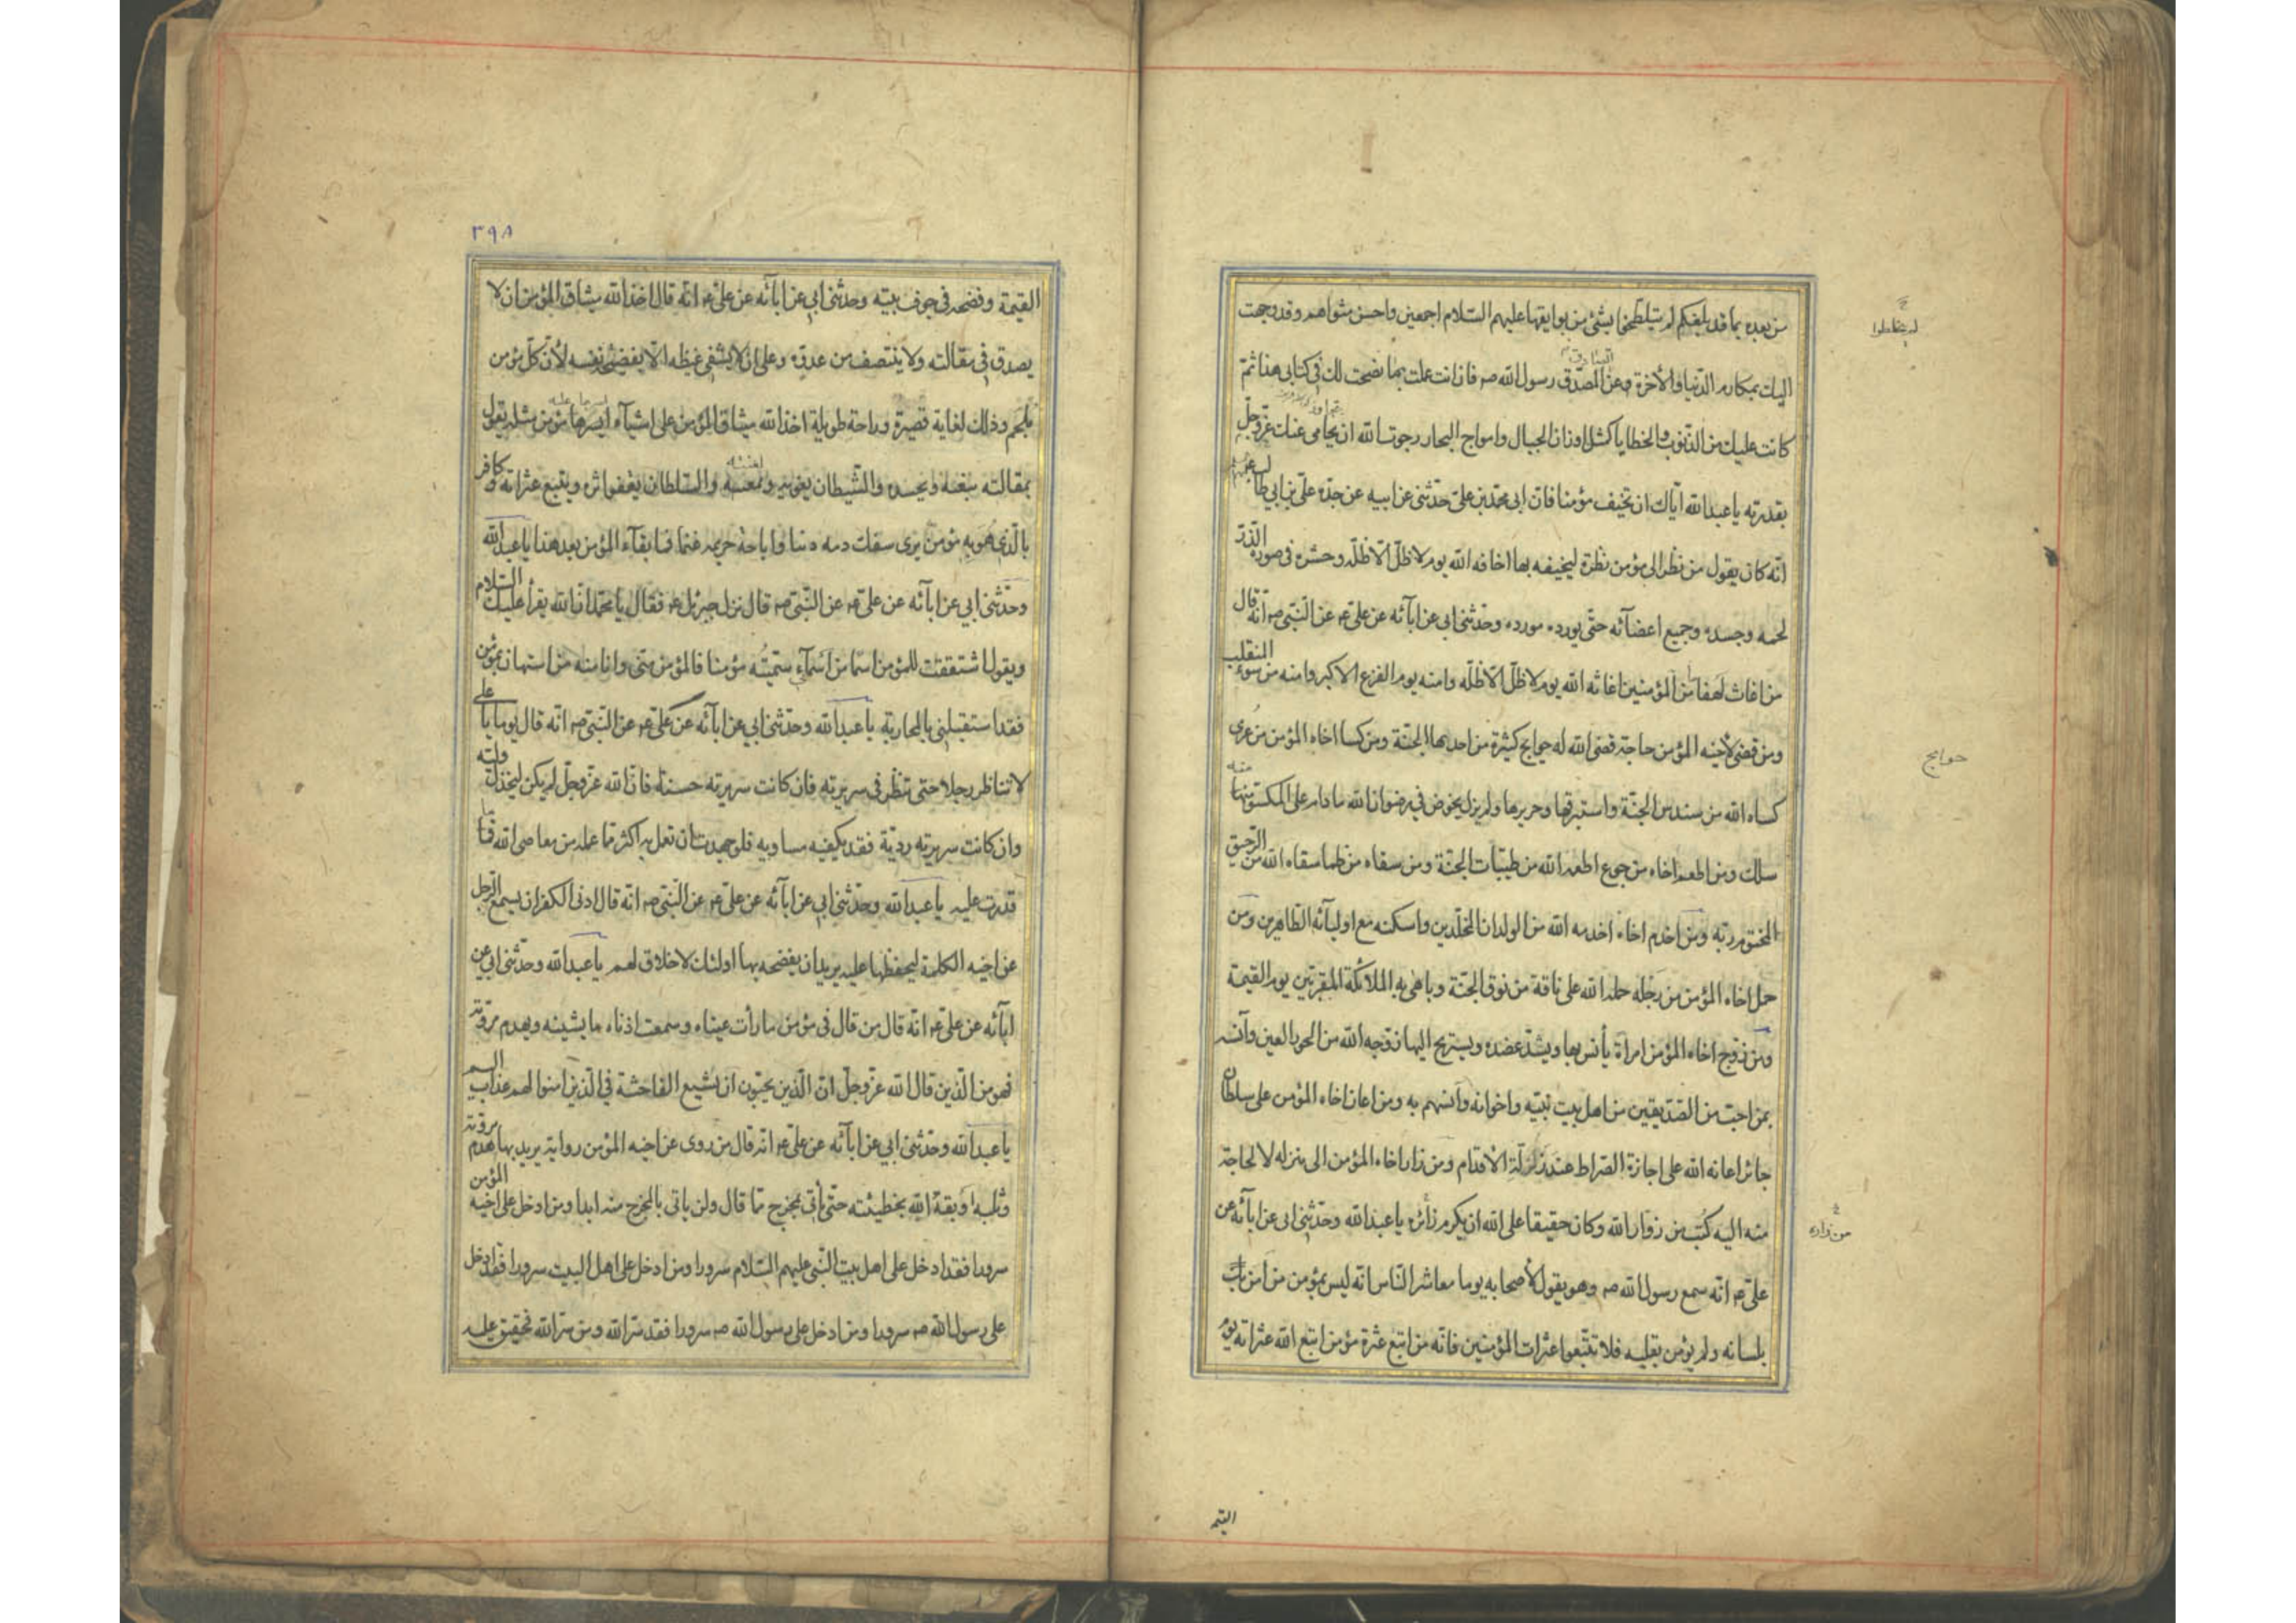 من بعده بما قد بلغكم لم يتلطخوا بشئ من بوايقها عليهم السلام اجمعين واحسن مثواهم وقد وجهت
اليك بمكارم الدنيا والأخرة وعن المصدق رسول الله صه فان انت عملت بما نصحت لك فى كتابى هذا ثم
الصادق
كانت عليك من الذنوب والخطايا كمثل اوزان الجبال وامواج البحار رجوت الله ان يحامى عنك عز وجل
بقدرته يا عبد الله اياك ان تخيف مؤمنا فان ابى محمد بن على حدثنى عن ابيه عن جده على بن ابي طالب
انه كان يقول من نظر الى مؤمن نظرة ليخيفه بها اخافه الله يوم لا ظل الا ظله وحشره فى صورة الذر
لحمه وجسده وجميع اعضآئه حتى يورده مورده وحدثنى ابى عن ابآئه عن على عه عن النبى صه انه قال
من اغاث لهفا من المؤمنين اغاثه الله يوم لا ظل الا ظله وامنه يوم الفزع الاكبر وامنه من سوء المنقلب
ومن قضى لأخيه المؤمن حاجة قضى الله له حوايج كثيرة من احديها الجنة ومن كسا اخاه المؤمن من عرى
كساه الله من سندس الجنة واستبرقها وحريرها ولم يزل يخوض فى رضوان الله ما دام على المكسو منها
سلك ومن اطعم اخاه من جوع اطعمه الله من طيبات الجنة ومن سقاه من ظما سقاه الله من الرحيق
المختوم ربه ومن اخدم اخاه اخدمه الله من الولدان المخلدين واسكنه مع اوليآئه الطاهرين ومن
حمل اخاه المؤمن من رجله حمله الله على ناقة من نوق الجنة وباهى به الملائكة المقربين يوم القيمة
ومن زوج اخاه المؤمن امراة يأنس بها ويشد عضده ويستريح اليها زوجه الله من الحور العين وآنسه
بمن احب من الصديقين من اهل بيت نبيه واخوانه وآنسهم به ومن اعان اخاه المؤمن على سلطان
جائر اعانه الله على اجازة الصراط عند زلزلة الأقدام ومن زار اخاه المؤمن الى منزله لا لحاجة
منه اليه كتب من زوار الله وكان حقيقا على الله ان يكرم زائره يا عبد الله وحدثنى ابى عن ابآئه عن
على عه انه سمع رسول الله صه وهو يقول لأصحابه يوما معاشر الناس انه ليس بمؤمن من امن
بلسانه ولم يؤمن بقلبه فلا تتبعوا عثرات المؤمنين فانه من اتبع عثرة مؤمن اتبع الله عثراته يوم
حوايج
من زاره
القيمة
٣٩٨
القيمة وفضحه فى جوف بيته وحدثنى ابي عن ابآئه عن على عه انه قال اخذ الله ميثاق المؤمن ان لا
يصدق فى مقالته ولا ينتصف من عدوه وعلى ان لا يشفى غيظه الا بفضيحة نفسه لأن كل مؤمن
ملجم وذلك لغاية قصيرة وراحة طويلة اخذ الله ميثاق المؤمن على اشيآء ايسرها مؤمن مثله يقول
بمقالته يبغيه ويحسده والشيطان يغويه والسلطان يقفو اثره ويتبع عثراته وكافر
بالذى هو به مؤمن يرى سفك دمه دينا واباحة حريمه غنما فما بقآء المؤمن بعد هذا يا عبد الله
وحدثنى ابي عن ابآئه عن على عه عن النبى صه قال نزل جبرئيل عه فقال يا محمد ان الله يقرأ عليك السلام
ويقول اشتققت للمؤمن اسما من اسمآئى سميته مؤمنا فالمؤمن منى وانا منه من استهان بمؤمن
فقد استقبلنى بالمحاربة يا عبد الله وحدثنى ابي عن ابآئه عن على عه عن النبى صه انه قال يوما يا على
لا تناظر رجلا حتى تنظر فى سريرته فان كانت سريرته حسنة فان الله عز وجل لم يكن ليخذل وليه
وان كانت سريرته ردية فقد يكفيه مساويه فلو جهدت ان تعمل به اكثر مما عمله من معاصى الله ما
قدرت عليه يا عبد الله وحدثنى ابي عن ابآئه عن على عه عن النبى صه انه قال ادنى الكفر ان يسمع الرجل
عن اخيه الكلمة ليحفظها عليه يريد ان يفضحه بها اولئك لا خلاق لهم يا عبد الله وحدثنى ابي عن
ابآئه عن على عه انه قال من قال فى مؤمن ما رأت عيناه وسمعت اذناه ما يشينه ويهدم مروته
فهو من الذين قال الله عز وجل ان الذين يحبون ان تشيع الفاحشة في الذين امنوا لهم عذاب اليم
يا عبد الله وحدثنى ابي عن ابآئه عن على عه انه قال من روى عن اخيه المؤمن رواية يريد بها هدم مروته
وثلبه اوبقه الله بخطيئته حتى يأتى بمخرج مما قال ولن ياتى بالمخرج منه ابدا ومن ادخل على اخيه المؤمن
سرورا فقد ادخل على اهل بيت النبى عليهم السلام سرورا ومن ادخل على اهل البيت سرورا فقد ادخل
على رسول الله صه سرورا ومن ادخل على رسول الله صه سرورا فقد سر الله ومن سر الله فحقيق عليه